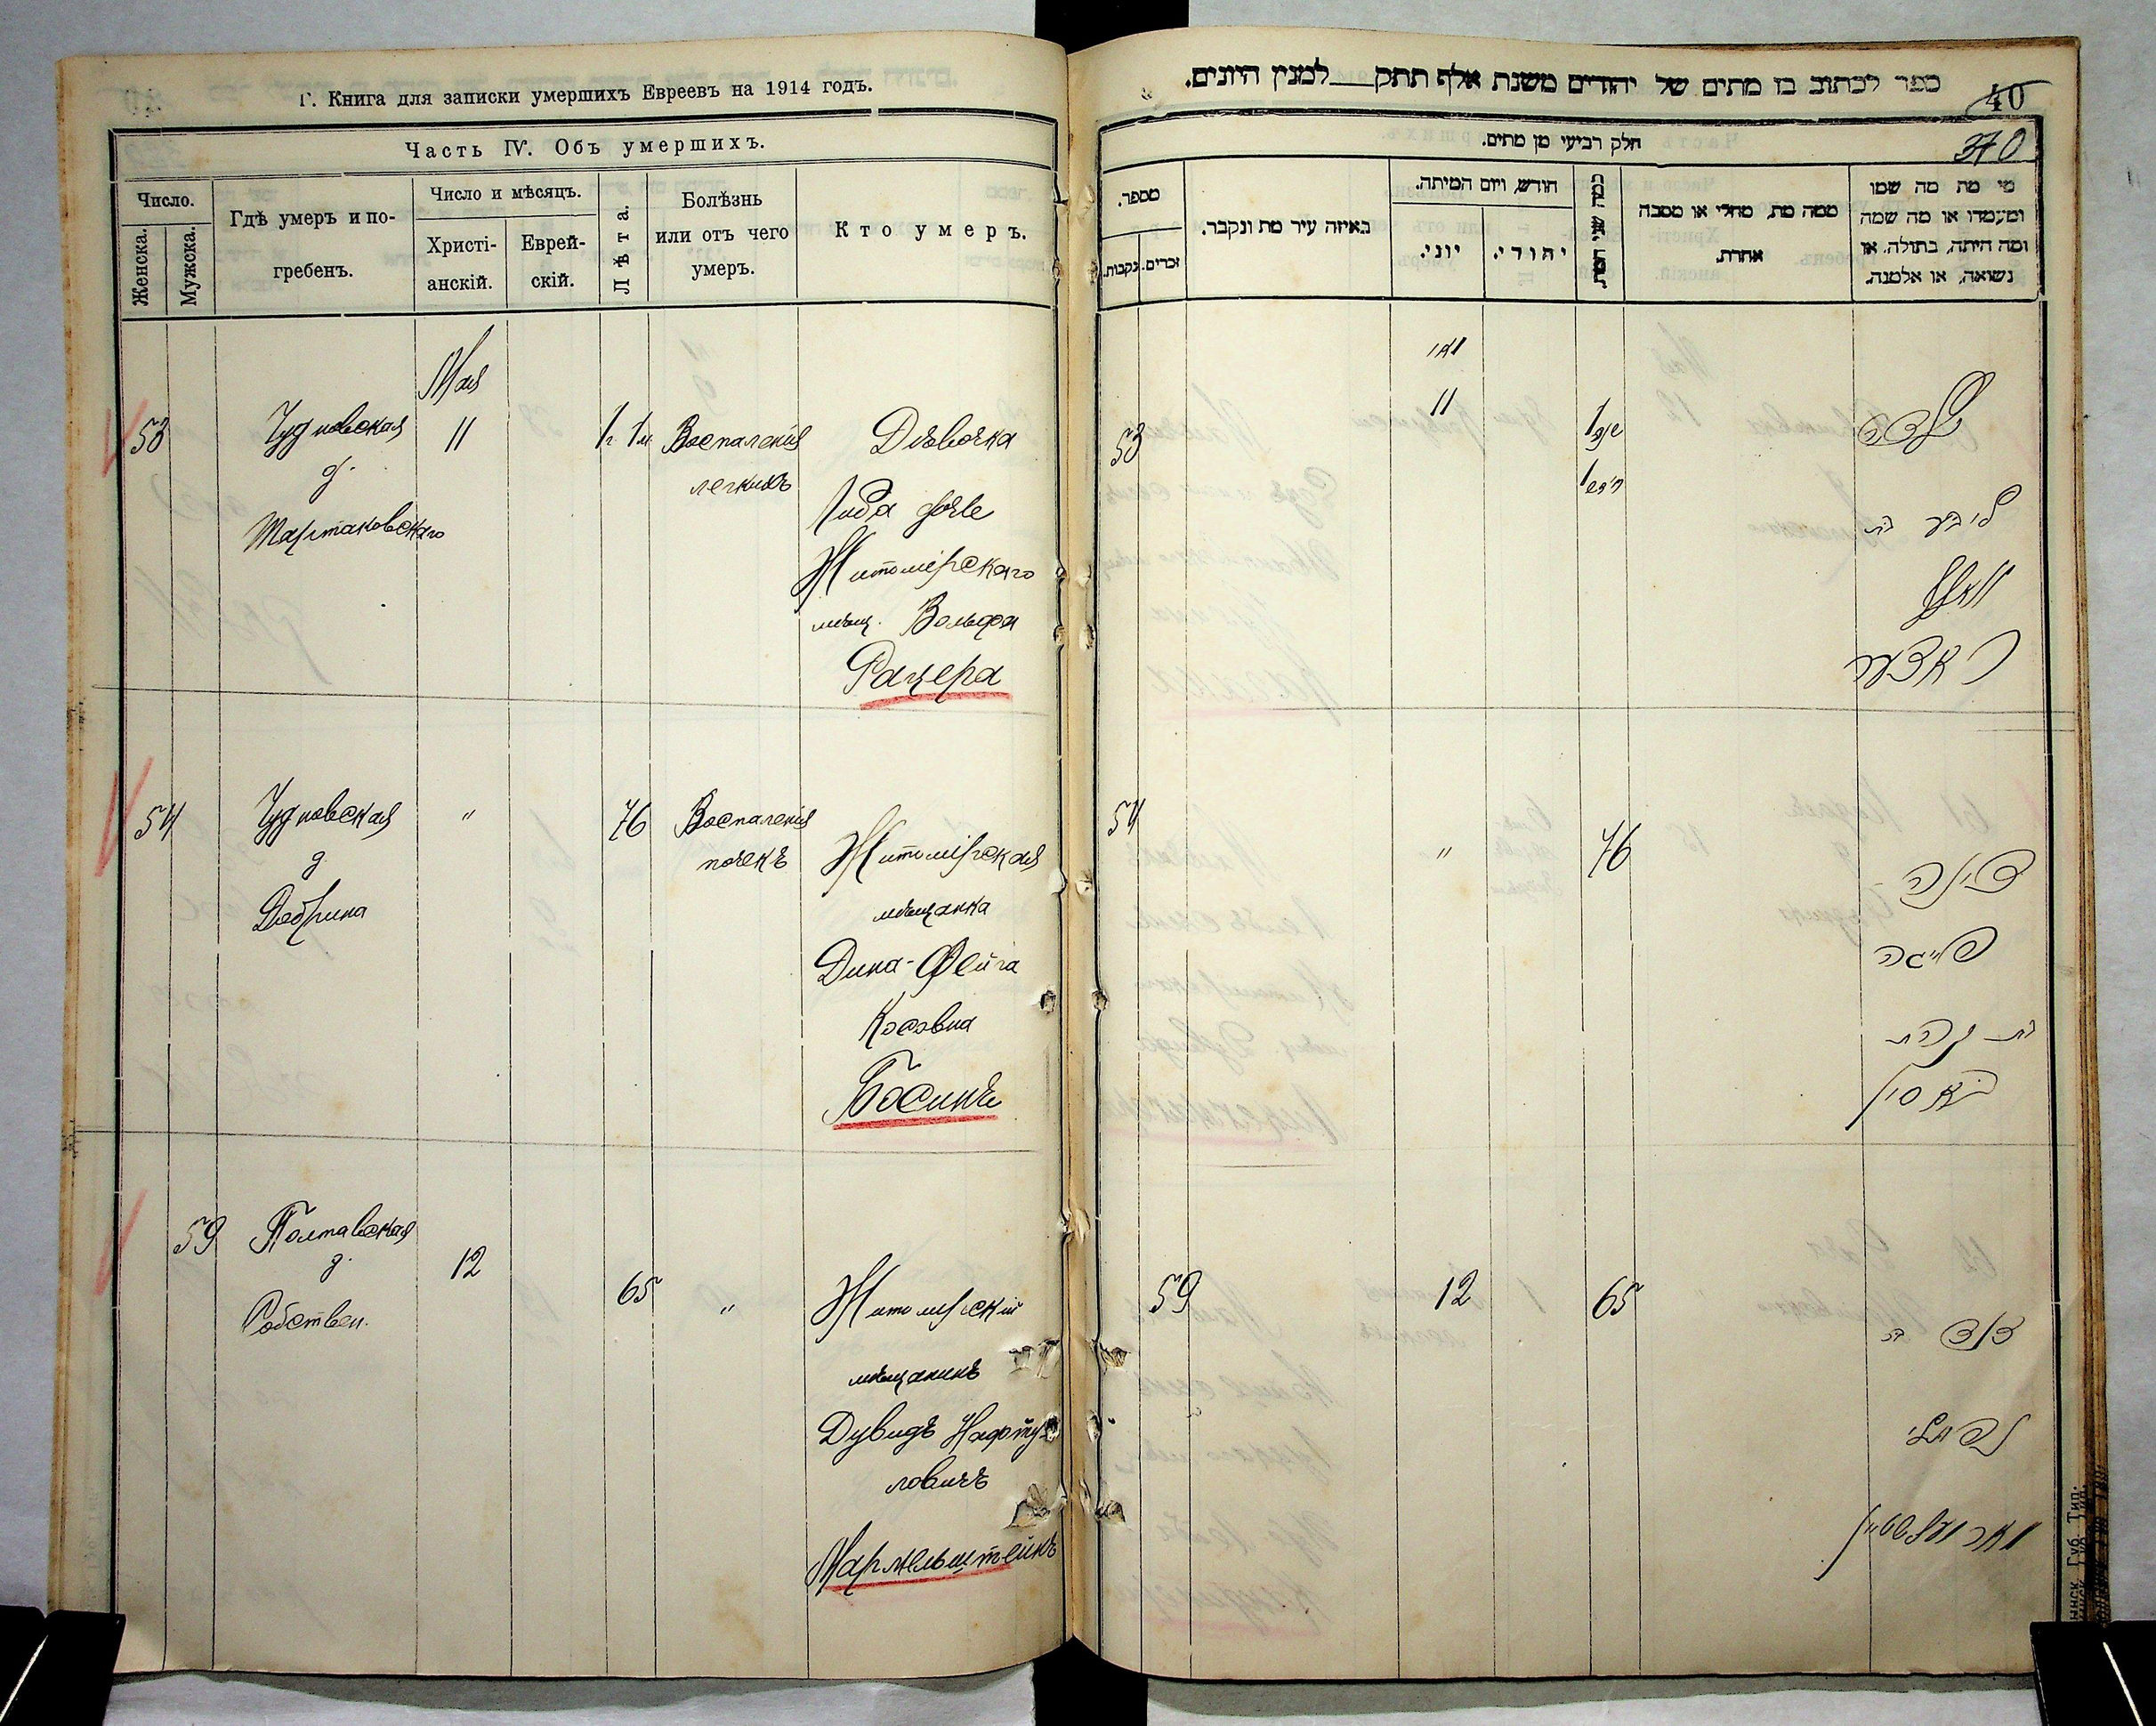 Г. Книга для записки умершихъ Евреевъ на 1914 годъ.
Часть IV. Объ умершихъ.
Число.
Женска.
Мужска.
Гдѣ умеръ и по-
гребенъ.
Число и мѣсяцъ.
Христі-
анскій.
Еврей-
скій.
Лѣта.
Болѣзнь
или отъ чего
умеръ.
Кто умеръ.
Мая
53
Чудновская
д.
11
1г 1м
Воспаленія
легкихъ
Дѣвочка
Либа дочь
Житомірскаго
мѣщ. Вольфа
Рацера
54
Чудновская
д
"
76
Воспаленія
почекъ
Житомірская
мѣщанка
Дина-Фейга
Босинъ
59
Полтавская
д.
Собствен.
12
65
"
Житомірскій
мѣщанинъ
Дувидъ Нафту-
ловичъ
Мармельштейнъ
ספר לכתוב בו מתים של יהודים משנת אלף תתק למנין היונים.
40
370
חלק רביעי מן מתים.
מספר.
זכרים.
נקבות.
באיזה עיר מת ונקבר.
חודש, ויום המיתה.
יוני.
יהודי.
כמה שני המת.
ממה מת, מחלי או מסבה
אחרת.
מי מת מה שמו
ומעמדו או מה שמה
ומה היתה, בתולה, או
נשואה, או אלמנה.
מאי
53
11
1
1
ליבע בת
וואלף
ראצער
54
"
76
דינה
פייגה
באסין
59
12
65
דוד ב
נפתלי
מארמעלשטיין